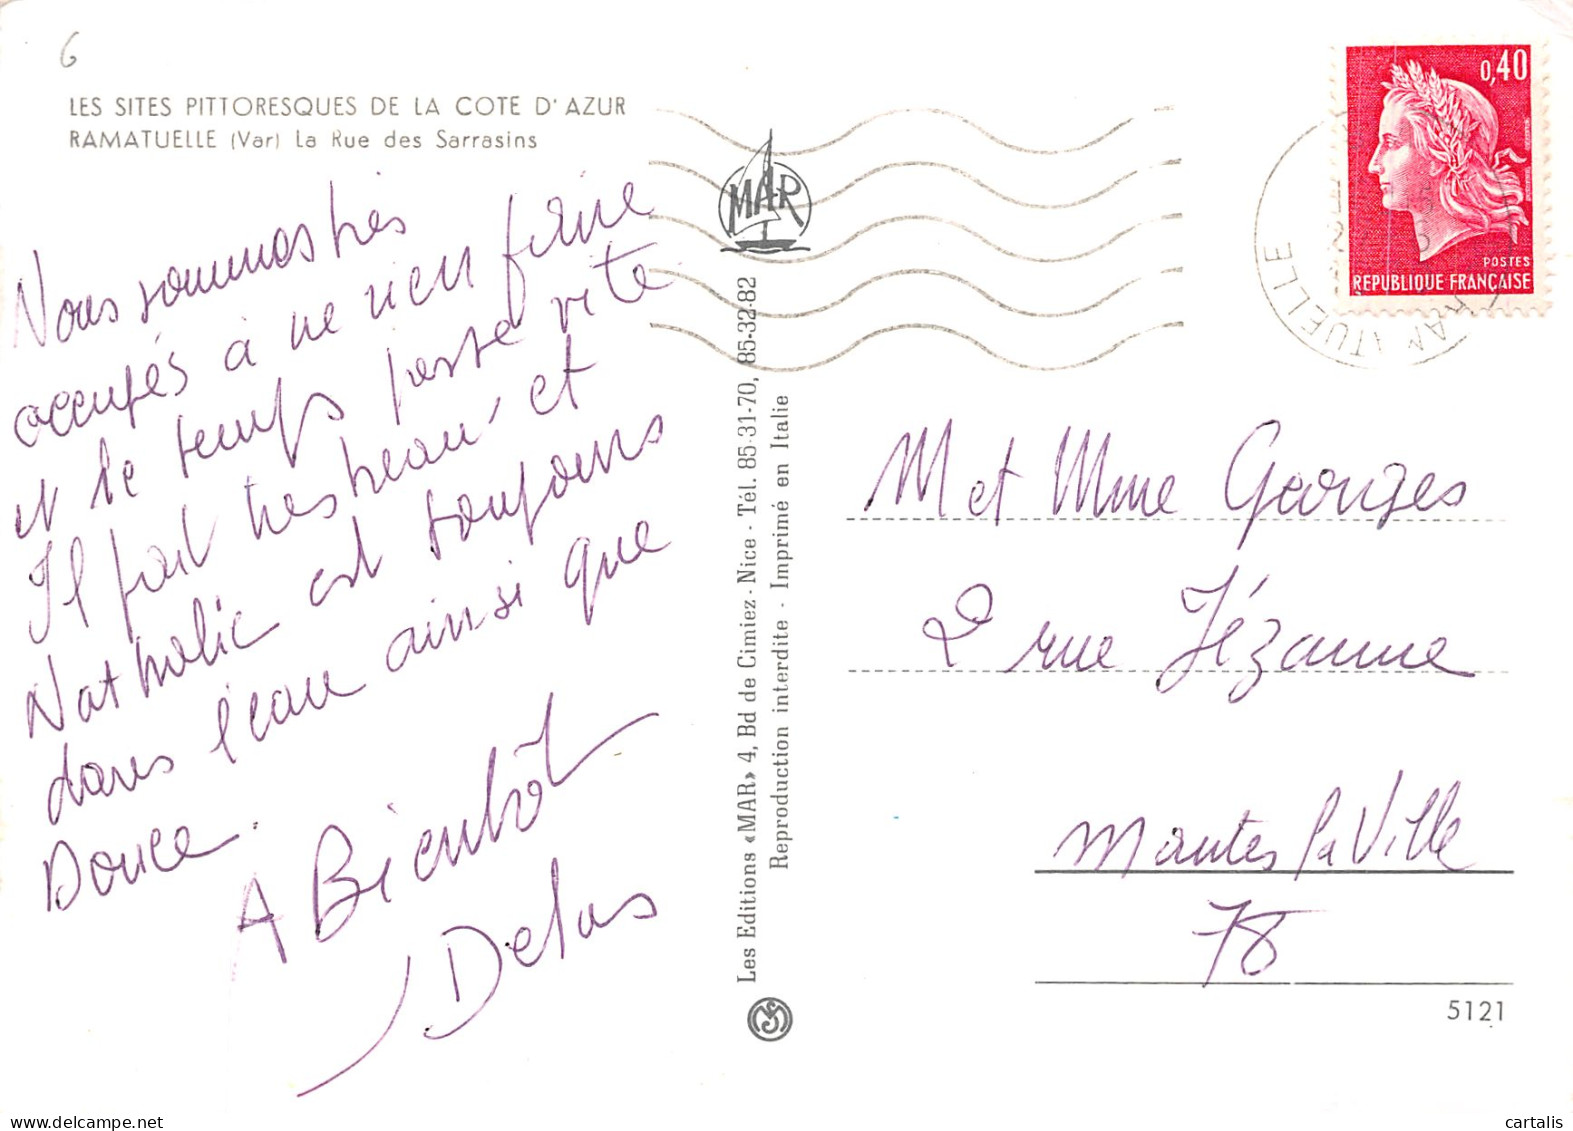 6
LES SITES PITTORESQUES DE LA COTE D'AZUR
RAMATUELLE (Var) La Rue des Sarrasins
Nous sommes très
occupés à ne rien faire
et le temps passe vite
Il fait très beau et
Nathalie est toujours
dans l'eau ainsi que
Douce.
A Bientôt
MAR
Les Editions «MAR» 4, Bd de Cimiez - Nice - Tél. 85-31-70, 85-32-82
Reproduction interdite - Imprimé en Italie
0,40
POSTES
REPUBLIQUE FRANÇAISE
M et Mme Georges
2 rue Jézanne
Mantes la Ville
78
5121
cartalis
www.delcampe.net